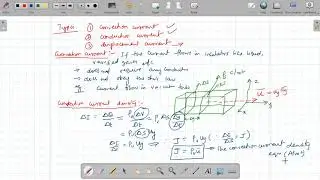 Types: ① Convection current ✓
② conduction current ✓
③ displacement current
Convection current :- If the current flows in insulators like liquid,
rarefied gases etc.
→ does not require any conductor
→ does not obey the ohm's law
Eg. Current flow in vacuum tube
Convection current density :-
ΔI = ΔQ/Δt = ρᵥ ΔV/Δt = ρᵥ ΔS (Δy/Δt)
= ρᵥ (ΔS) Uy
ΔI/ΔS = ρᵥ Uy ⇒ J = ρᵥ Uy (∵ ΔI/ΔS = J)
J = ρᵥ u → The convection current density
eqn (A/m²)